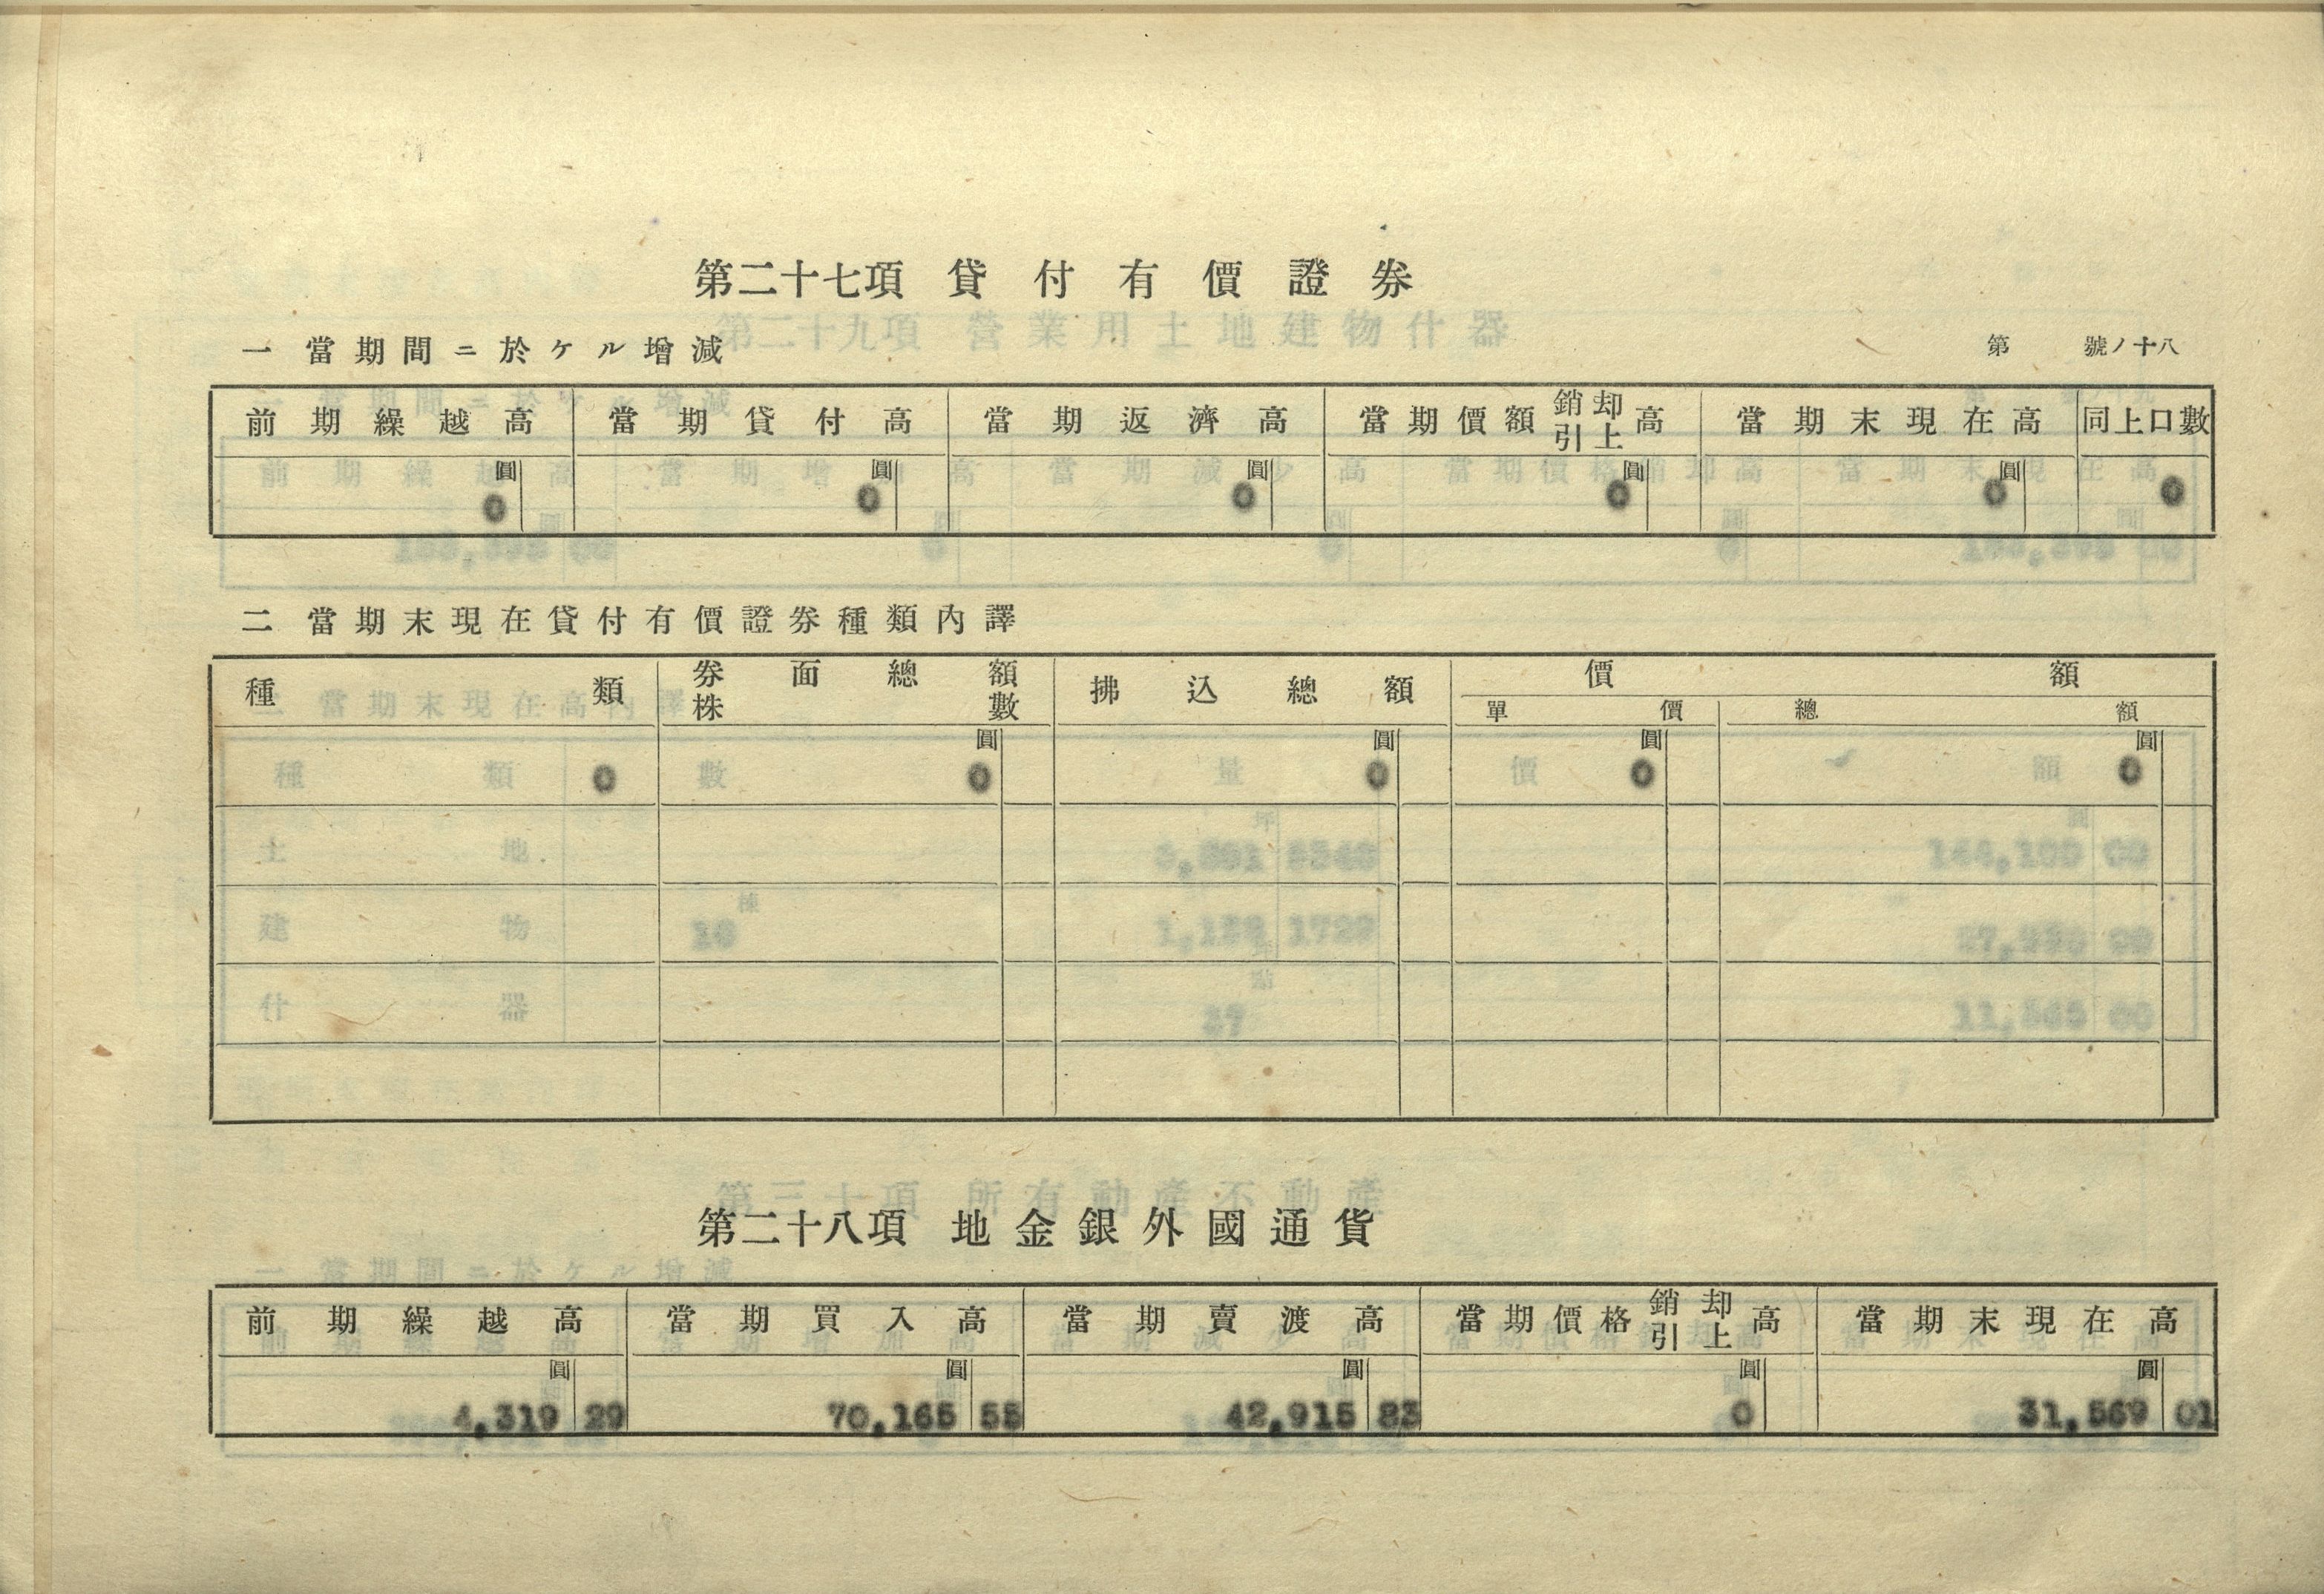 第二十七項 貸付有價證券
一 當期間ニ於ケル增減 第 號ノ十八
前期繰越高 當期貸付高 當期返濟高 當期價額銷却引上高 當期末現在高 同上口數
圓 圓 圓 圓 圓
0 0 0 0 0 0
二 當期末現在貸付有價證券種類內譯
種類 券面總額 株數 拂込總額 價額
單價 總額
圓 圓 圓 圓
0 0 0 0 0
第二十八項 地金銀外國通貨
前期繰越高 當期買入高 當期賣渡高 當期價格銷却引上高 當期末現在高
圓 圓 圓 圓 圓
4,319 29 70,165 55 42,915 83 0 31,569 01